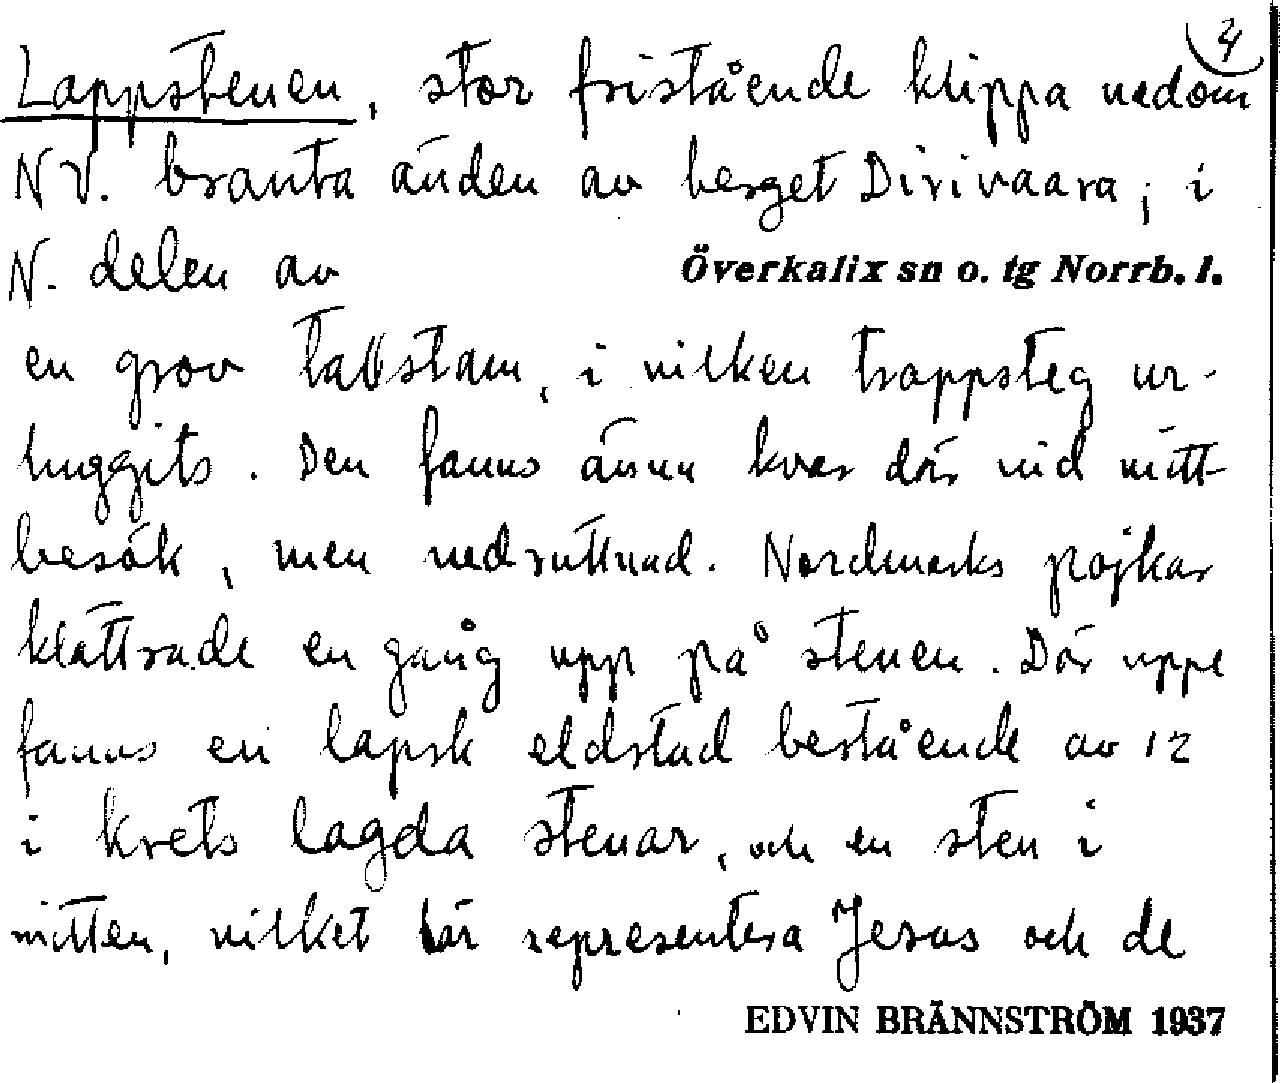 24
Lappstenen, stor fristående klippa nedom
NV. branta änden av berget Dirivaara, i
N. delen av Överkalix sn o. tg Norrb. l.
en grov tallstam, i vilken trappsteg ur-
huggits. Den fanns ännu kvar där vid mitt
besök, men nedruttnad. Nordmarks pojkar
klättrade en gång upp på stenen. Där uppe
fanns en lapsk eldstad bestående av 12
i krets lagda stenar, och en sten i
mitten, vilket lär representera Jesus och de
EDVIN BRÄNNSTRÖM 1937